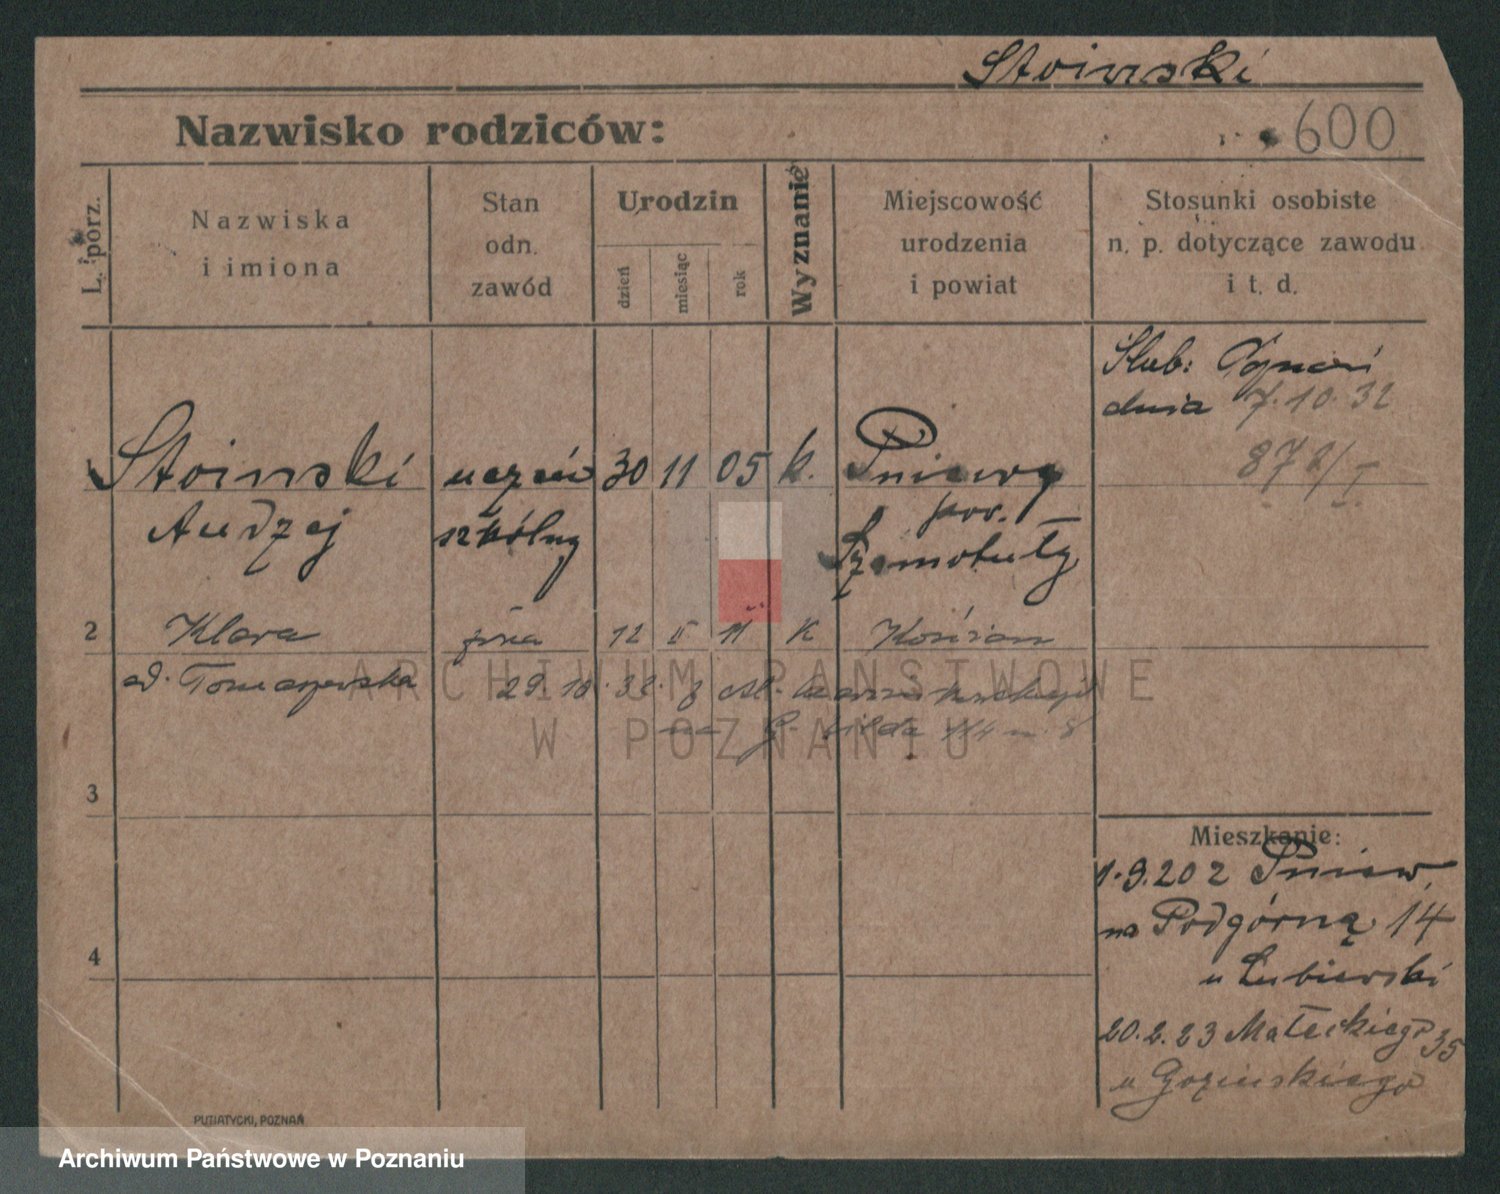 Stoinski
Nazwisko rodziców:
600
L. porz.
Nazwiska
i imiona
Stan
odn.
zawód
Urodzin
dzień
miesiąc
rok
Wyznanie
Miejscowość
urodzenia
i powiat
Stosunki osobiste
n. p. dotyczące zawodu
i t. d.
Ślub: Poznań
dnia 7.10.32
878/I
1 Stoinski uczeń 30 11 05 k. Pniewy
Andrzej szkólny pow.
Szamotuły
2 Klara żona 12 II 11 K Kościan
od. Tomaszewska 29.10.32. z
na G. Wilda 114 m. 8
3
4
Mieszkanie:
1.9.202 Pniew,
na Podgórną 14
u Lubierski
20.2.23 Małeckiego 35
u Gozimskiego
PUTIATYCKI, POZNAŃ
ARCHIWUM PAŃSTWOWE
W POZNANIU
Archiwum Państwowe w Poznaniu